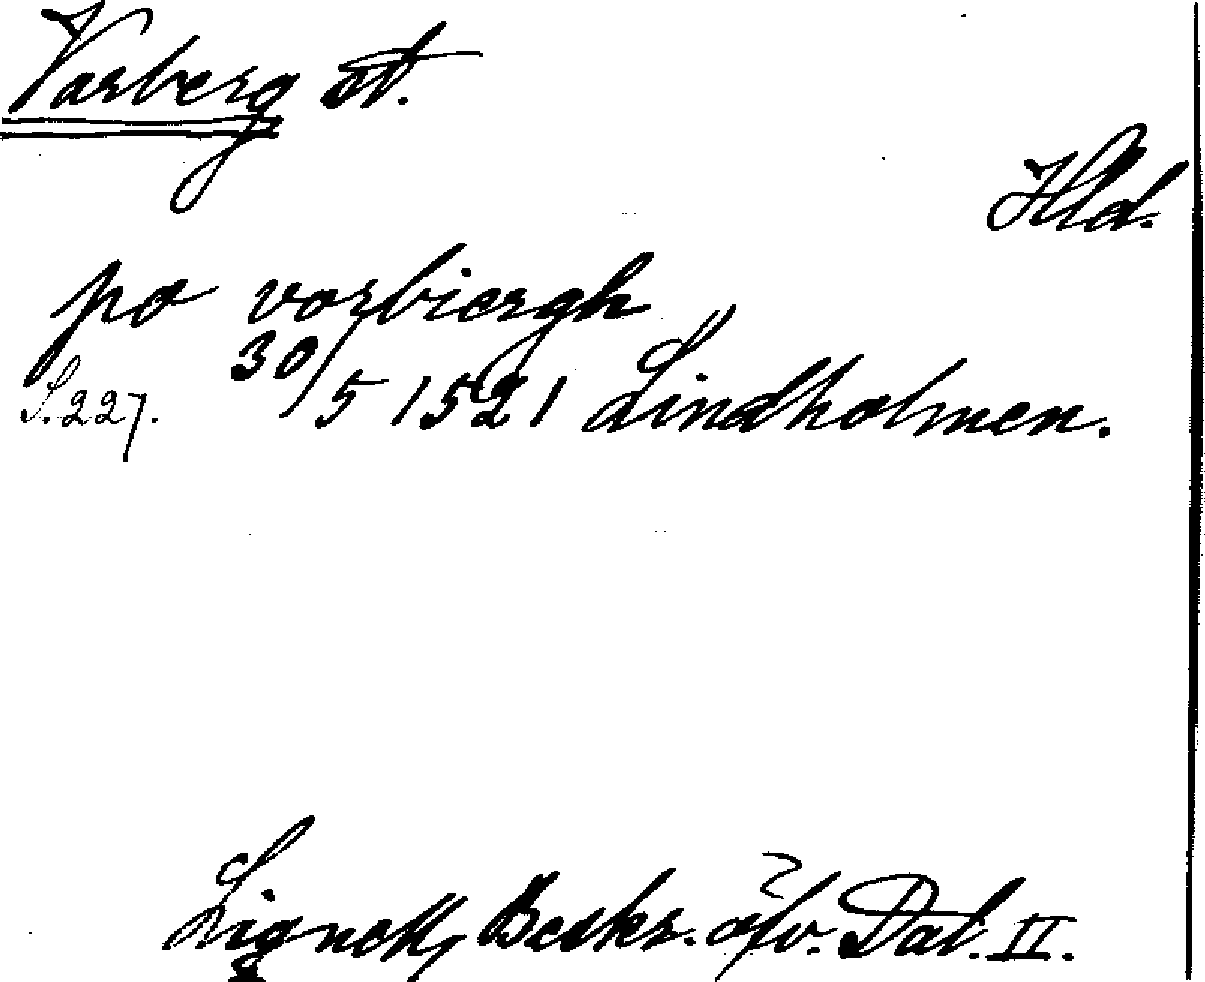 Varberg st.
Hld.
po varbiergh
30/5 1521 Lindholmen.
S. 227.
Lignell, Beskr. öfv. Dal. II.